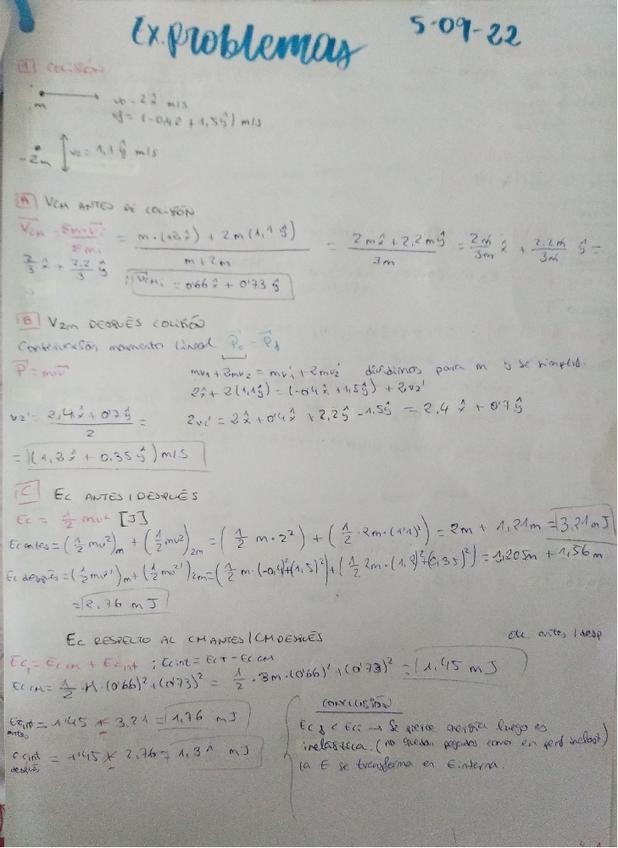 Ex. problemas 5-09-22
1 COLISIÓN
m v₀ = 2x̂ m/s
vf = (-0,4x̂ + 1,5ŷ) m/s
2m v₀ = 1,1ŷ m/s
A VCM ANTES DE COLISIÓN
V⃗CM = Σm·v⃗ / Σmᵢ = m·(2x̂) + 2m(1,1ŷ) / m+2m = 2mx̂ + 2,2mŷ / 3m = 2m/3m x̂ + 2,2m/3m ŷ =
2/3 x̂ + 2,2/3 ŷ ; V⃗CM = 0'66x̂ + 0'73ŷ
B V2m DESPUÉS COLISIÓN
Conservación momento lineal P⃗₀ = P⃗f
P⃗ = mv⃗ mv₁ + 2mv₂ = mv₁' + 2mv₂' dividimos para m y se simplif.
2x̂ + 2(1,1ŷ) = (-0'4x̂ + 1,5ŷ) + 2v₂'
v₂' = 2,4x̂ + 0'7ŷ / 2 = 2v₂' = 2x̂ + 0'4x̂ + 2,2ŷ - 1,5ŷ = 2,4x̂ + 0'7ŷ
= (1,2x̂ + 0.35ŷ) m/s
C EC ANTES/DESPUÉS
Ec = 1/2 mv² [J]
Ec antes = (1/2 mv²)m + (1/2 mv²)2m = (1/2 m·2²) + (1/2·2m·(1'1)²) = 2m + 1,21m = 3,21mJ
Ec después = (1/2 mv'²)m + (1/2 mv²')2m = (1/2 m·(-0,4)²+(1,5)²) + (1/2 2m·(1,2)²+(0,35)²) = 1,205m + 1,56m
= 2,76 mJ
EC RESPETO AL CM ANTES/CM DESPUÉS
Ec = Ec cm + Ec int ; Ec int = EcT - Ec cm
Ec cm = 1/2 · M·(0'66)²+(0'73)² = 1/2 · 3m·(0'66)²+(0'73)² = 1,45 mJ
Ec int antes = 1'45 - 3,21 = 1,76 mJ
Ec int después = 1'45 - 2,76 = 1,31 mJ
CONCLUSIÓN
Ecf < Eci → Se pierde energía luego es
inelástica. (no quedan pegados como en perf inelást)
la E se transforma en E interna.